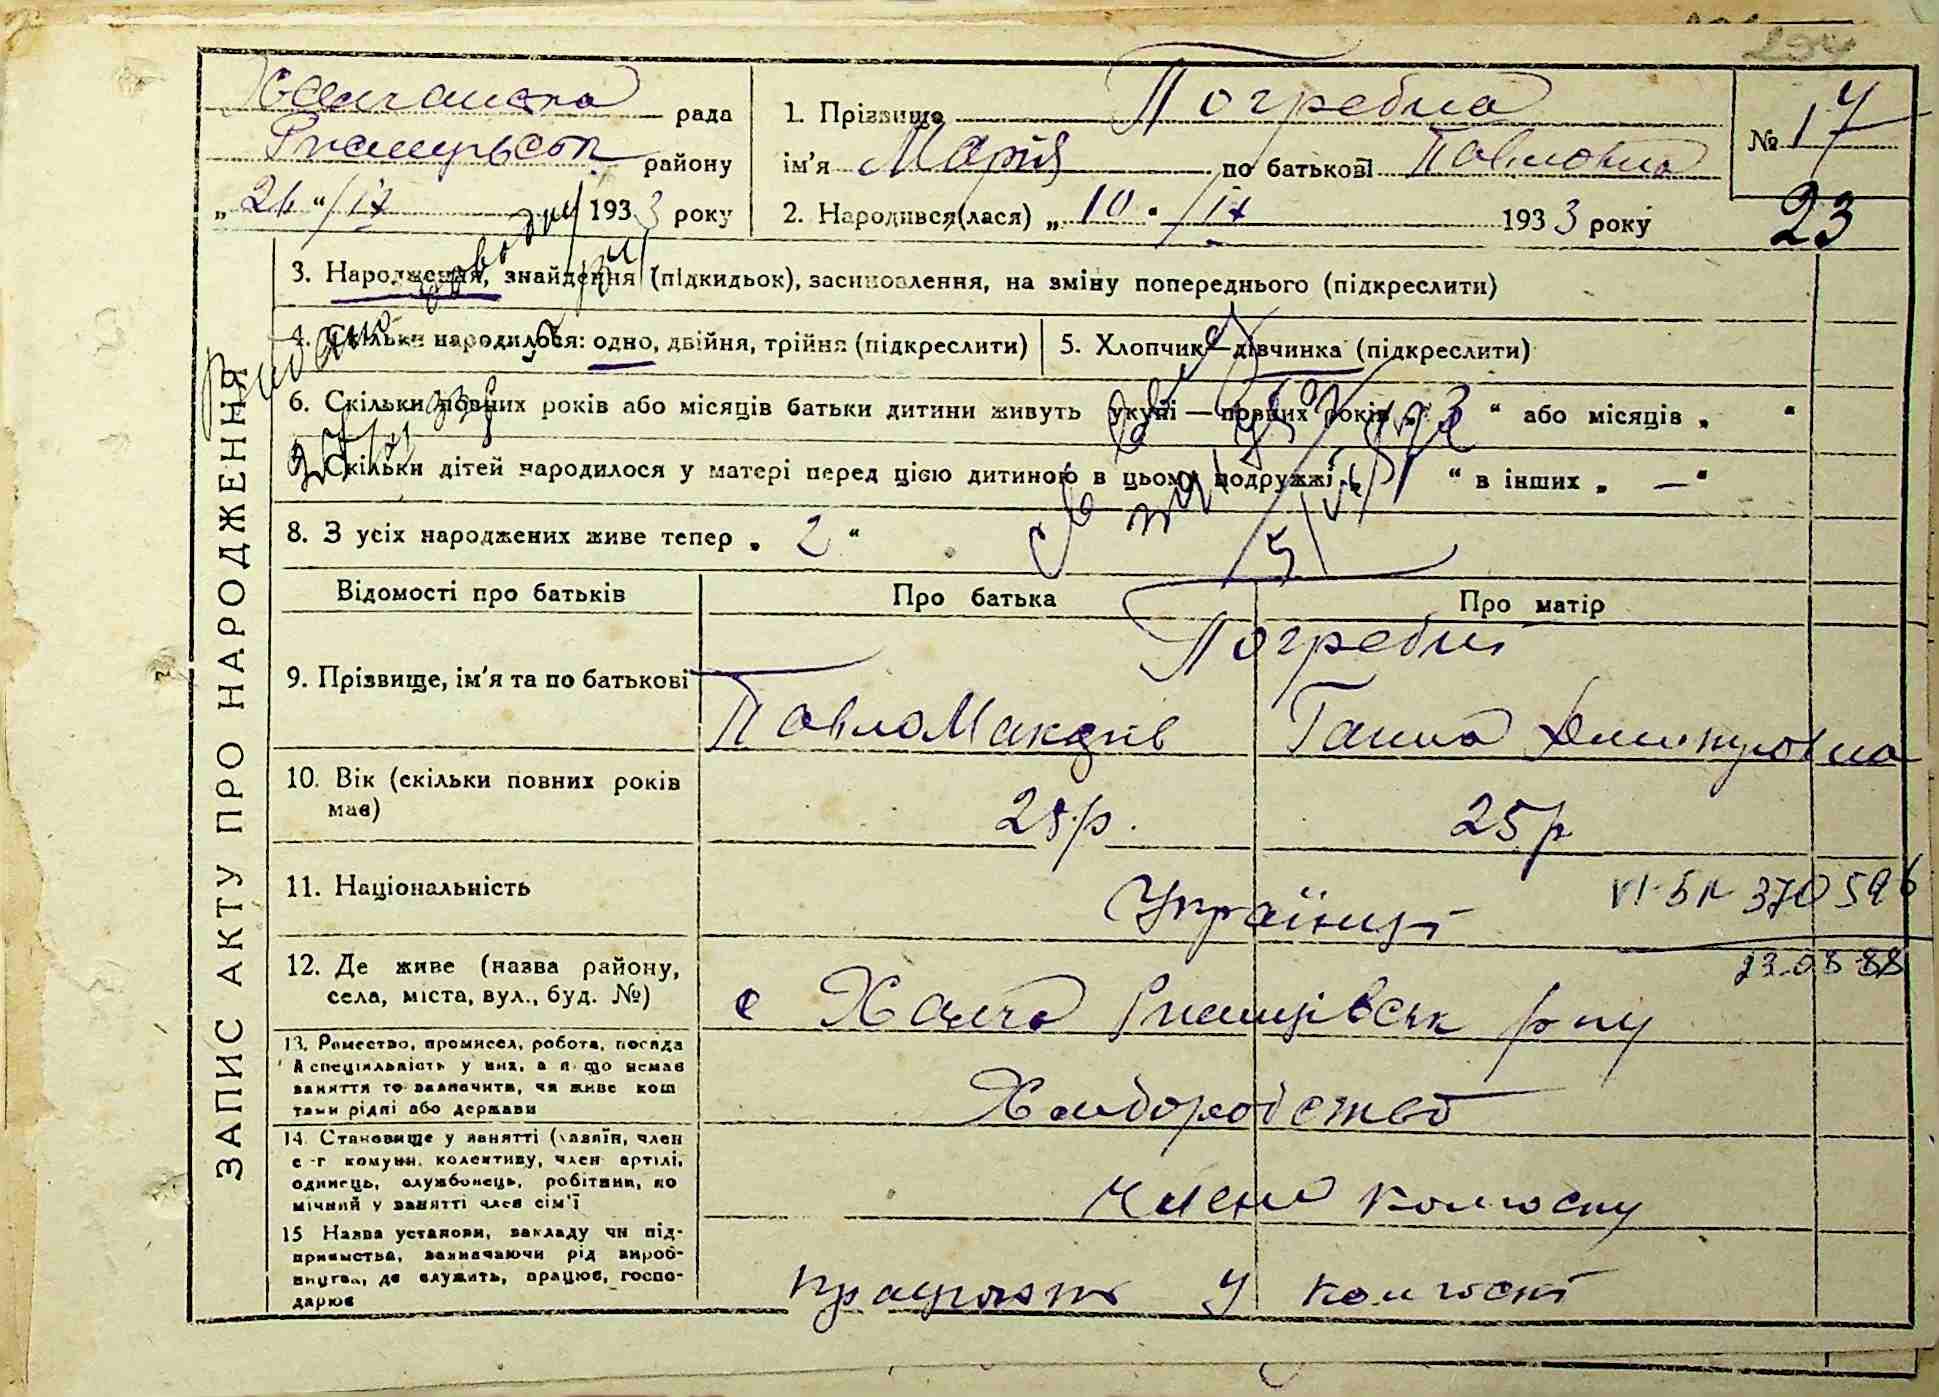 Халчанська рада
Ржищівськ району
„ 26 “ /IX 1933 року
1. Прізвище Погребна
ім'я Марія по батькові Павловна
2. Народився(лася) „ 10 “ /IX 1933 року
№ 17
23
ЗАПИС АКТУ ПРО НАРОДЖЕННЯ
3. Народження, знайдення (підкидьок), засиновлення, на зміну попереднього (підкреслити)
4. Скільки народилося: одно, двійня, трійня (підкреслити)
5. Хлопчик—дівчинка (підкреслити)
6. Скільки повних років або місяців батьки дитини живуть укупі — повних років „ 3 “ або місяців „ “
7. Скільки дітей народилося у матері перед цією дитиною в цьому подружжі „ 1 “ в інших „ — “
8. З усіх народжених живе тепер „ 2 “
Відомості про батьків
Про батька
Про матір
9. Прізвище, ім'я та по батькові
Погребні
Павло
Ганна
10. Вік (скільки повних років має)
25 р.
25 р
11. Національність
Українці
370596
23.08.88
12. Де живе (назва району, села, міста, вул., буд. №)
с Халча Ржищівськ р-ну
13. Ремество, промисел, робота, посада й спеціяльність у них, а якщо немає заняття то зазначити, чи живе коштами рідні або держави
Хліборобство
14. Становище у занятті (хазяїн, член с-г комуни, колективу, член артілі, одинець, службовець, робітник, помічний у занятті член сім'ї
члени колгоспу
15 Назва установи, закладу чи підприємства, зазначаючи рід виробництва, де служить, працює, господарює
працюють у колгоспі